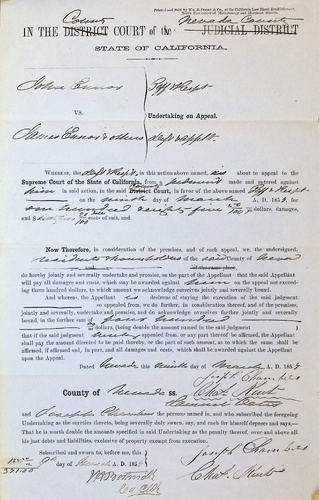 Printed and Sold by
County Nevada County
IN THE DISTRICT COURT of the JUDICIAL DISTRICT
STATE OF CALIFORNIA.
John Ennor Plff & Respt
VS. Undertaking on Appeal.
James Ennor & others Defts & Applt
WHEREAS, the Deft & in this action above named, about to appeal to the
Supreme Court of the State of California, from a judgment made and entered against
him in said action, in the said District Court, in favor of the above named Plff & Respt
on the of March A. D. 185
one hundred eighty five dollars, damages,
and $ costs of suit, and
Now Therefore, in consideration of the premises, and of such appeal, we, the undersigned,
residents & householders of the said County of Nevada
do hereby jointly and severally undertake and promise, on the part of the Appellant, that the said Appellant
will pay all damages and costs, which may be awarded against him on the appeal not exceed-
ing three hundred dollars, to which amount we acknowledge ourselves jointly and severally bound.
And whereas, the Appellant is desirous of staying the execution of the said judgment
so appealed from, we do further, in consideration thereof, and of the premises,
jointly and severally, undertake and promise, and do acknowledge ourselves further jointly and severally
bound, in the further sum of four hundred
dollars, (being double the amount named in the said judgment)
that if the said judgment appealed from, or any part thereof, be affirmed, the Appellant
shall pay the amount directed to be paid thereby, or the part of such amount, as to which the same shall be
affirmed, if affirmed only in part, and all damages and costs, which shall be awarded against the Appellant
upon the Appeal.
Dated Nevada this day of March A. D. 185
Joseph Chambers
Chas. Kent
County of Nevada ss.
and Joseph Chambers the persons named in, and who subscribed the foregoing
Undertaking as the sureties thereto, being severally duly sworn, say, each for himself deposes and says:—
That he is worth double the amounts specified in said Undertaking as the penalty thereof, over and above all
his just debts and liabilities, exclusive of property exempt from execution.
Joseph Chambers
day of March A. D. 185
Chas. Kent